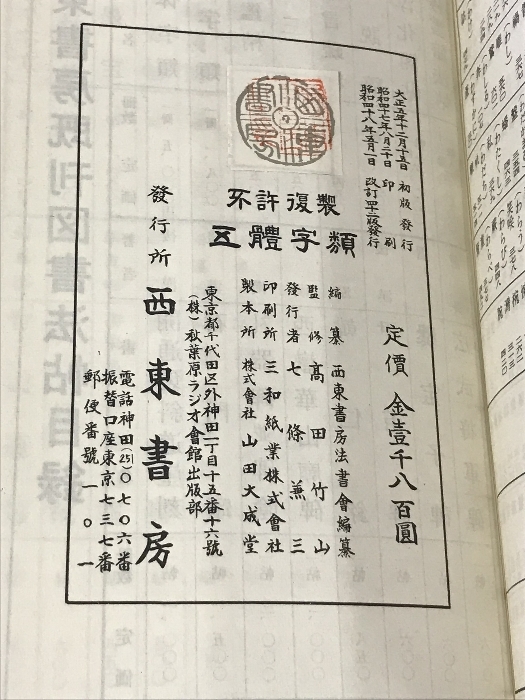 大正五年十二月十五日 初版發行
昭和四十七年八月二十日 印刷
昭和四十八年五月一日 改訂四十二版發行
定價 金壹千八百圓
不許復製
五體字類
編纂 西東書房法書會編纂
監修 高田竹山
發行者 七條兼三
印刷所 三和紙業株式會社
製本所 株式會社 山田大成堂
東京都千代田区外神田一丁目十五番十六號
(株)秋葉原ラジオ會館出版部
發行所 西東書房
電話神田(251)〇七〇六番
振替口座東京七三七番
郵便番號 一〇一